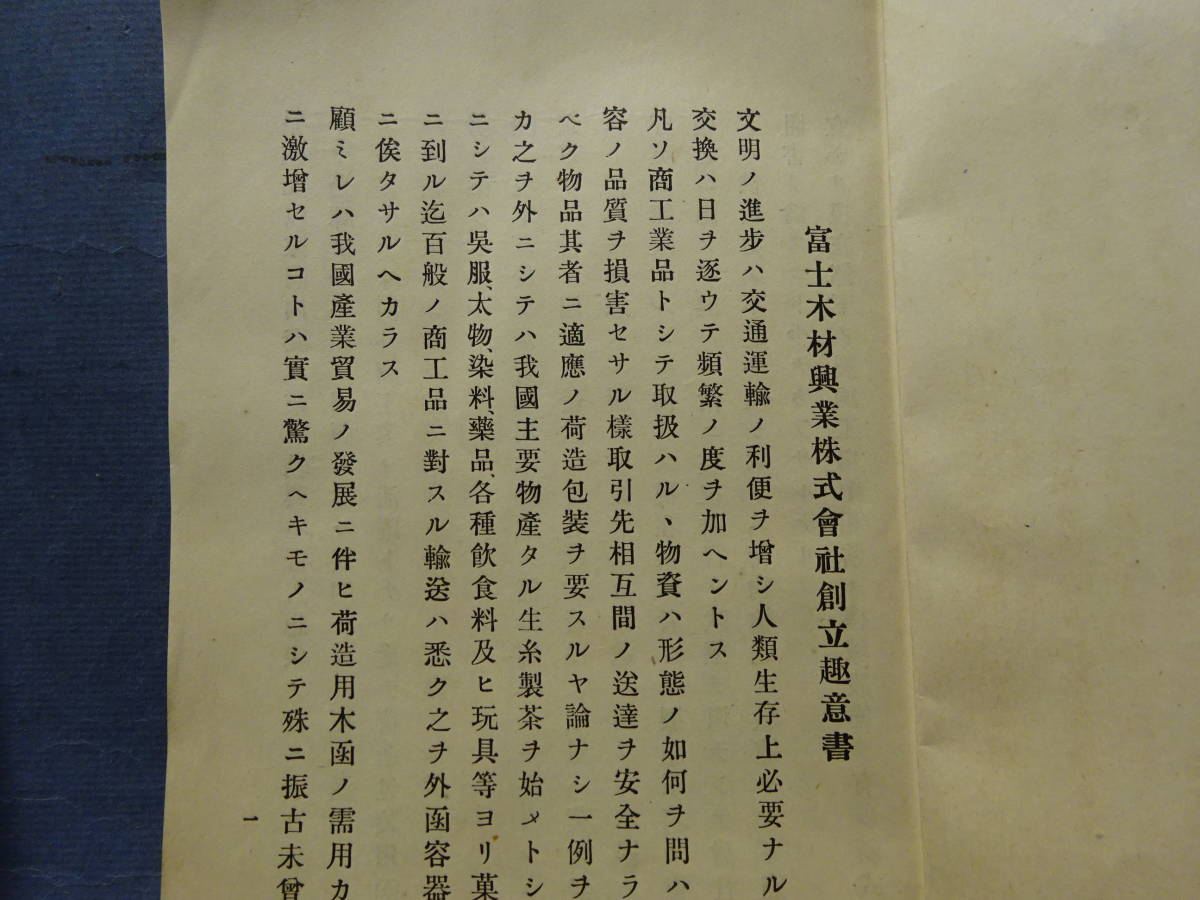 富士木材興業株式會社創立趣意書
文明ノ進步ハ交通運輸ノ利便ヲ增シ人類生存上必要ナル
交換ハ日ヲ逐ウテ頻繁ノ度ヲ加ヘントス
凡ソ商工業品トシテ取扱ハル、物資ハ形態ノ如何ヲ問ハ
容ノ品質ヲ損害セサル樣取引先相互間ノ送達ヲ安全ナラ
ベク物品其者ニ適應ノ荷造包裝ヲ要スルヤ論ナシ一例ヲ
カ之ヲ外ニシテハ我國主要物產タル生糸製茶ヲ始メトシ
ニシテハ吳服、太物、染料、藥品、各種飲食料及ヒ玩具等ヨリ菓
ニ到ル迄百般ノ商工品ニ對スル輸送ハ悉ク之ヲ外函容器
ニ俟タサルヘカラス
顧ミレハ我國產業貿易ノ發展ニ伴ヒ荷造用木函ノ需用カ
ニ激增セルコトハ實ニ驚クヘキモノニシテ殊ニ振古未曾
一